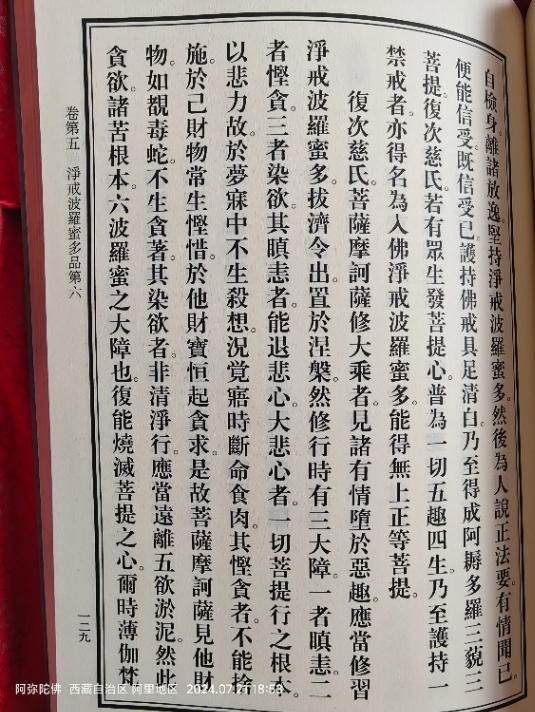 自檢身。離諸放逸。堅持淨戒波羅蜜多。然後為人說正法要。有情聞已。
便能信受。既信受已。護持佛戒具足清白。乃至得成阿耨多羅三藐三
菩提。復次慈氏。若有眾生發菩提心。普為一切五趣四生。乃至護持一
禁戒者。亦得名為入佛淨戒波羅蜜多。能得無上正等菩提。
復次慈氏。菩薩摩訶薩修大乘者。見諸有情墮於惡趣。應當修習
淨戒波羅蜜多。拔濟令出置於涅槃。然修行時有三大障。一者瞋恚。二
者慳貪。三者染欲。其瞋恚者。能退悲心。大悲心者。一切菩提行之根本。
以悲力故。於夢寐中不生殺想。況覺寤時斷命食肉。其慳貪者。不能捨
施。於己財物常生慳惜。於他財寶恒起貪求。是故菩薩摩訶薩見他財
物如覩毒蛇。不生貪著。其染欲者。非清淨行。應當遠離五欲淤泥。然此
貪欲。諸苦根本。六波羅蜜之大障也。復能燒滅菩提之心。爾時薄伽梵
卷第五 淨戒波羅蜜多品第六
一二九
阿弥陀佛 西藏自治区 阿里地区 2024.07.21 18:53